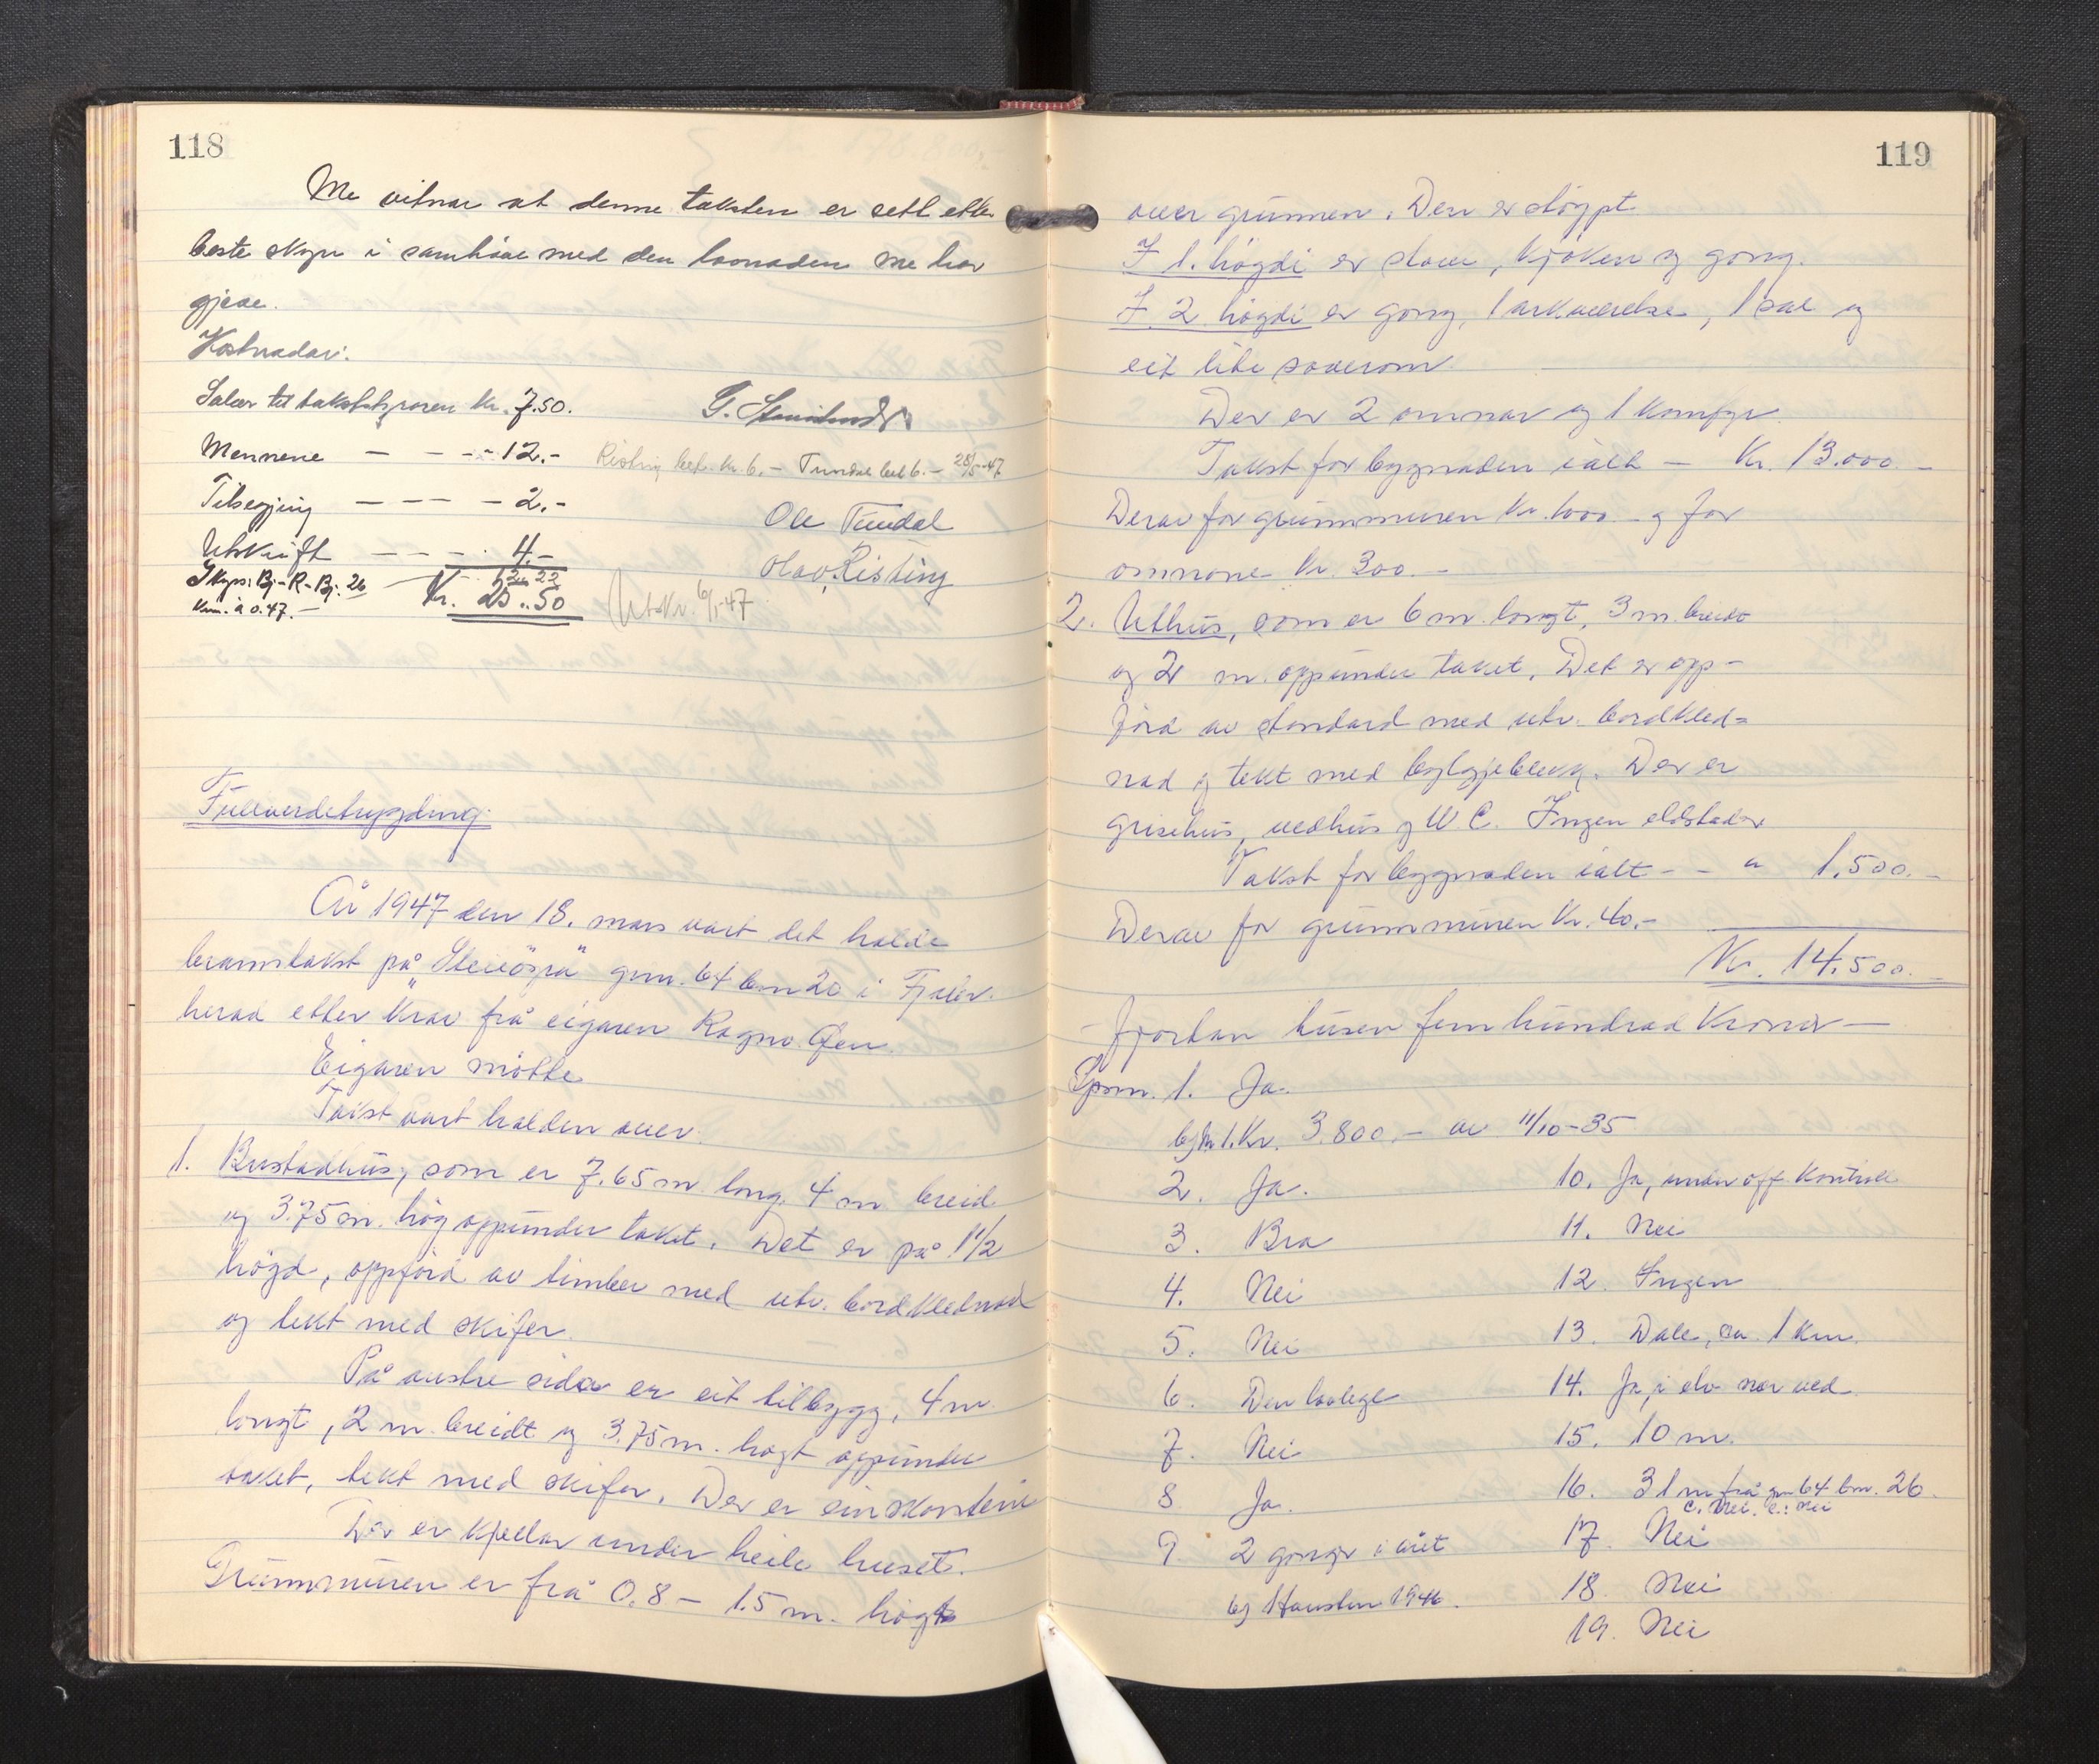 118
Me vitnar at denne taksten er sett etter
beste skyn i samhöve med den lovnaden me har
gjeve.
Kostnadar:
Salær til takststyraren kr. 7.50.
Mennene — — - - 12.-
Risting bet. kr. 6.- Tundal bet 6.- 28/5-47
Tilsegjing — — — - 2.-
Ole Tundal
Utskrift — — - . 4.-
Olav Risting
Skyss: Bj-R-Bj. 26
km. à 0.47. —
Kr. 25.50
Utskr. 6/1-47
Fullverdetrygding.
År 1947 den 18. mars vart det halde
brannstakst på gnr. 64 bnr 20 i Fjaler
herad etter krav frå eigaren Ragnv.
Eigaren mötte
Takst vart halden over:
1. Bustadhus, som er 7.65 m long. 4 m breid
og 3.75 m. hög oppunder taket. Det er på 1 1/2
högd, oppförd av timber med utv. bordklednad
og tekt med skifer.
På austre sida er eit tilbygg, 4 m
longt, 2 m. breidt og 3.75 m. högt oppunder
taket, tekt med skifer. Der er ein skorstein
Der er kjellar under heile huset.
Grunnmuren er frå 0.8 — 1.5 m. högt
119
over grunnen. Den er stöypt.
I 1. högdi er stove, kjöken og gong.
I. 2 högdi er gong, 1 arkværelse, 1 sal og
eit lite soverom.
Der er 2 omnar og 1 komfyr.
Takst for bygnaden ialt — Kr. 13.000.—
Derav for grunnmuren kr. 1000.- og for
omnane kr. 300.-
2. Uthus, som er 6 m. longt, 3 m. breidt
og 2 m. oppunder taket. Det er opp-
förd av standard med utv. bordkled=
nad og tekt med bylgjeblekk. Der er
grisehus, vedhus og W C. Ingen eldstader
Takst for bygnaden ialt - - " 1.500.-
Derav for grunnmuren kr. 40.-
Kr. 14.500.-
- fjortan tusen fem hundrad kroner —
Spm. 1. Ja.
Kr. 3.800.- av 11/10-35
2. Ja.
10. Ja, under off. kontroll
3. Bra
11. Nei
4. Nei
12. Ingen
5. Nei
13. Dale, ca. 1 km.
6. Den lovlege
14. Ja, i elv nær ved
7. Nei
15. 10 m.
8. Ja.
16. 31 m frå gnr 64 bnr. 26.
c. Nei. e.: Nei
9. 2 gonger i året
17. Nei
b) Hausten 1946.
18. Nei
19. Nei